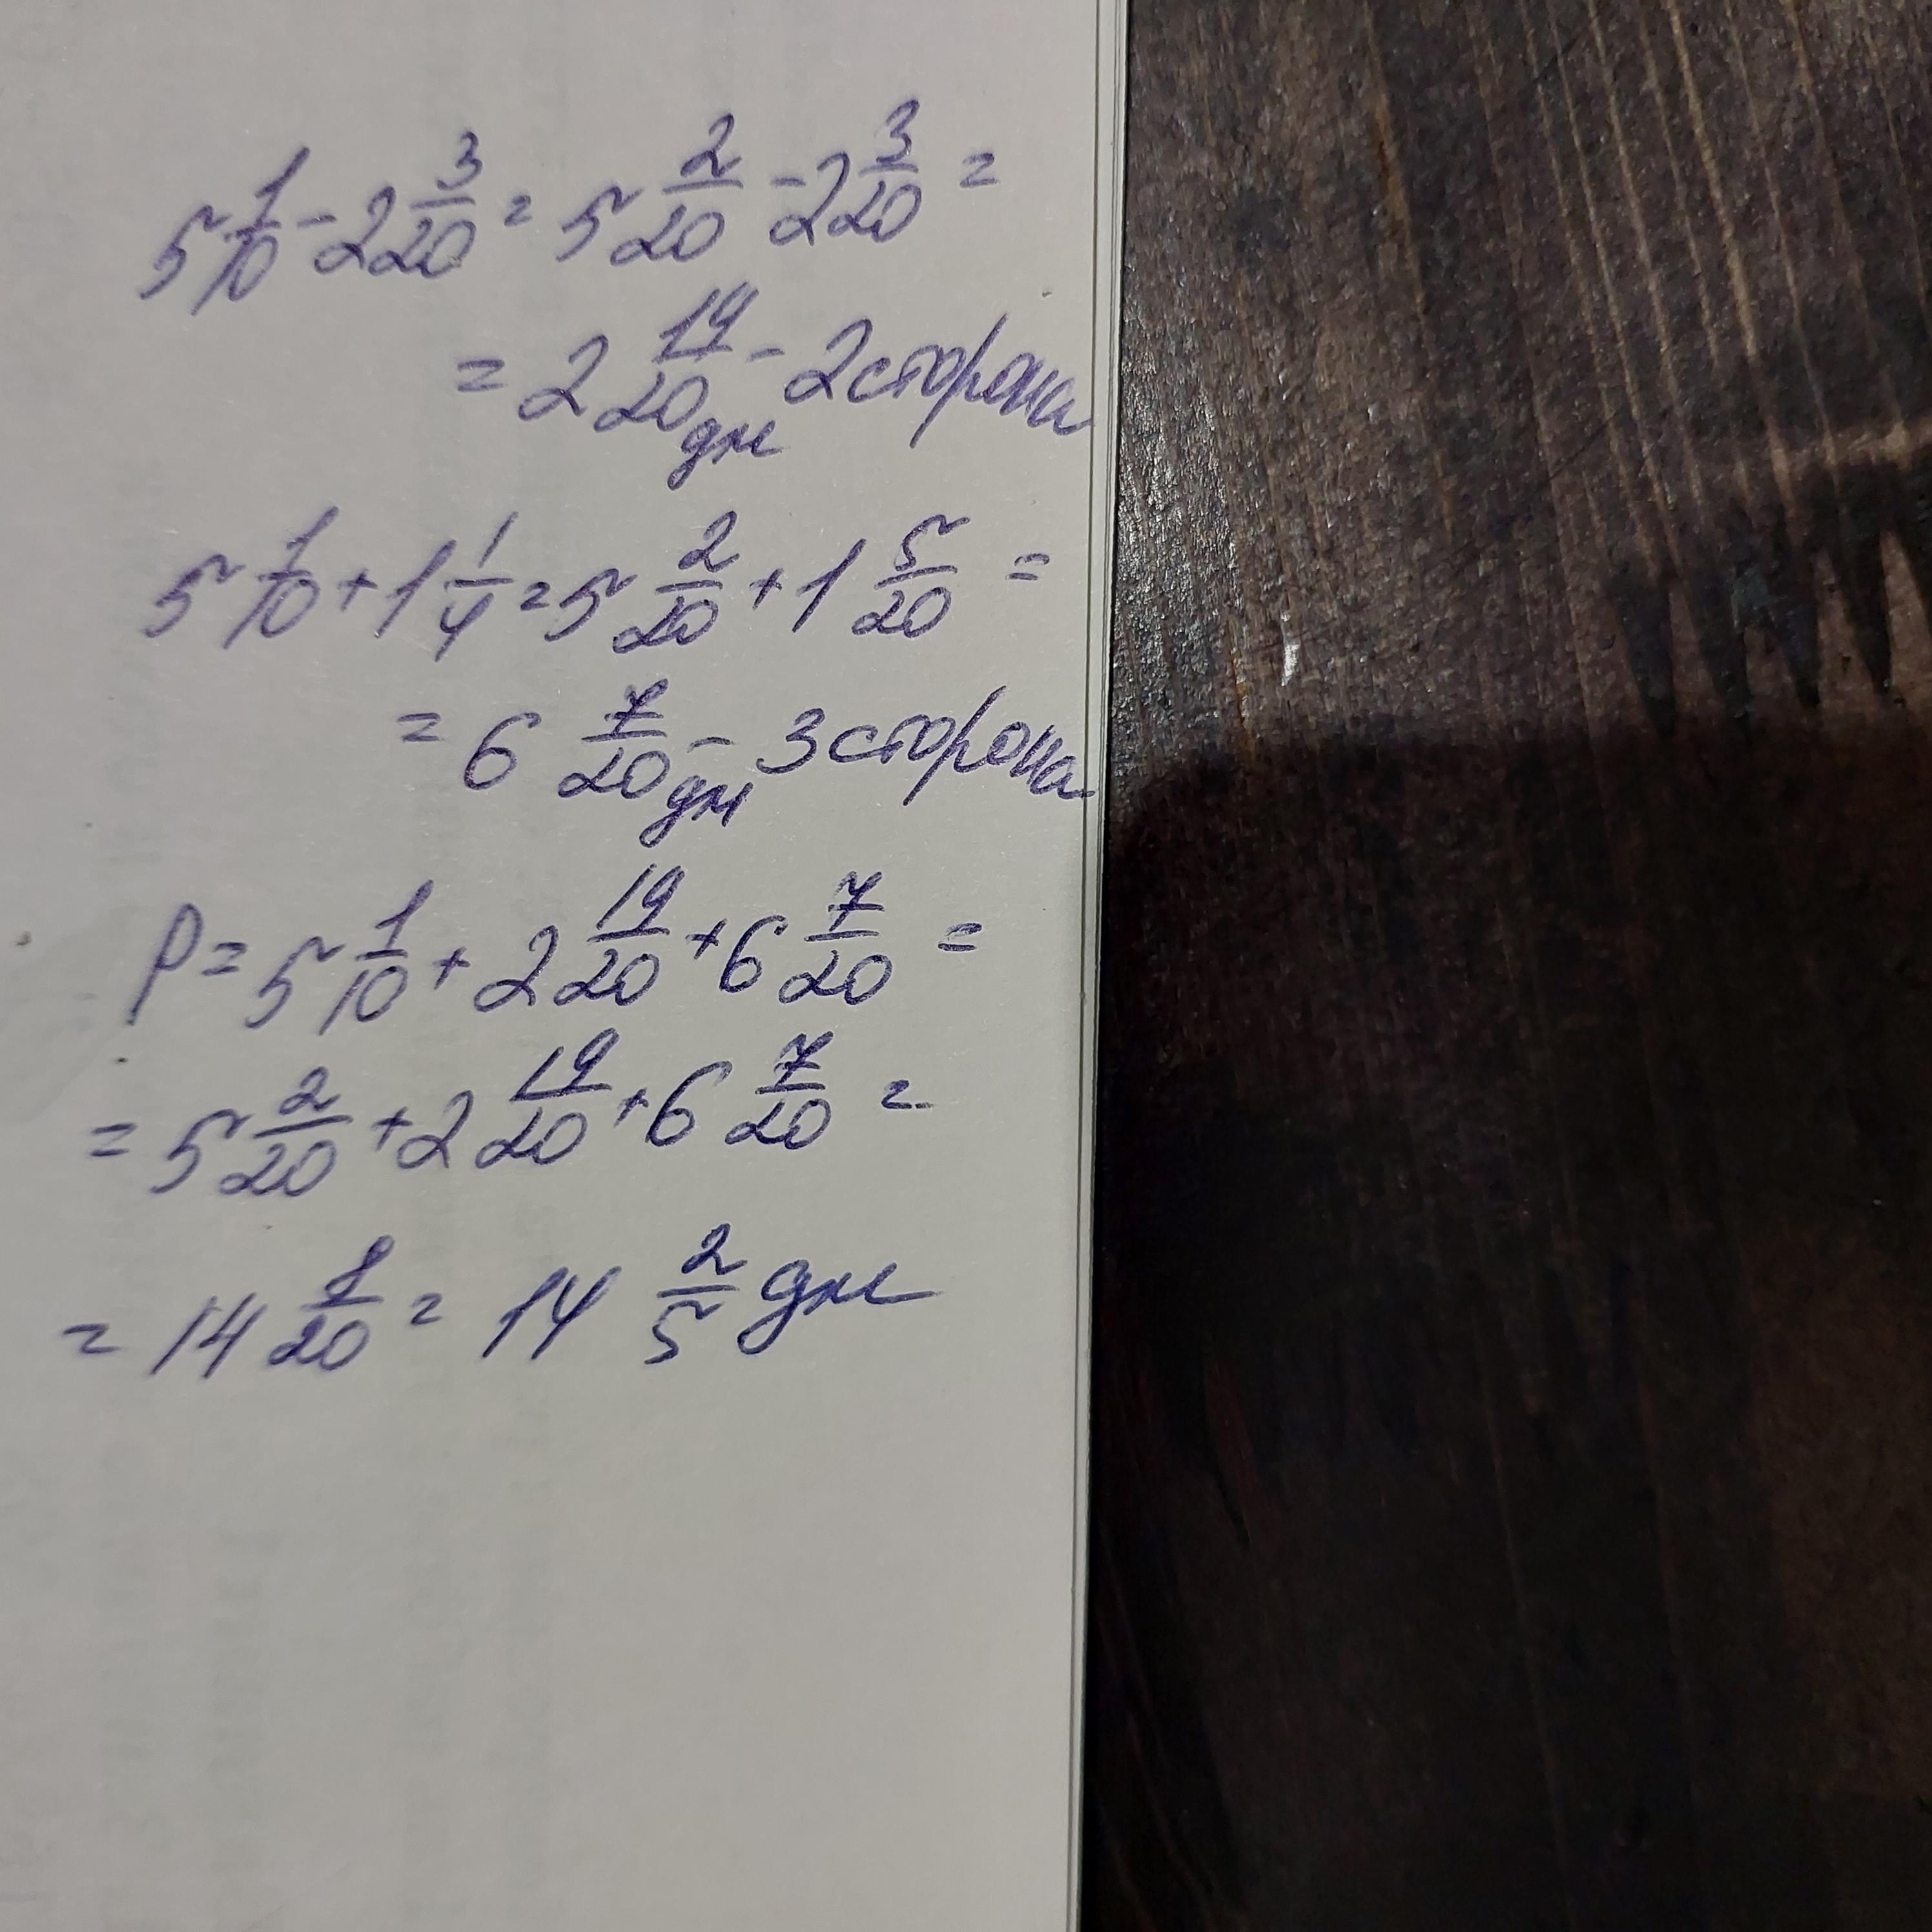 5 1/10 - 2 3/20 = 5 2/20 - 2 3/20 =
= 2 19/20 дм - 2 сторона
5 1/10 + 1 1/4 = 5 2/20 + 1 5/20 =
= 6 7/20 дм - 3 сторона
P = 5 1/10 + 2 19/20 + 6 7/20 =
= 5 2/20 + 2 19/20 + 6 7/20 =
= 14 8/20 = 14 2/5 дм